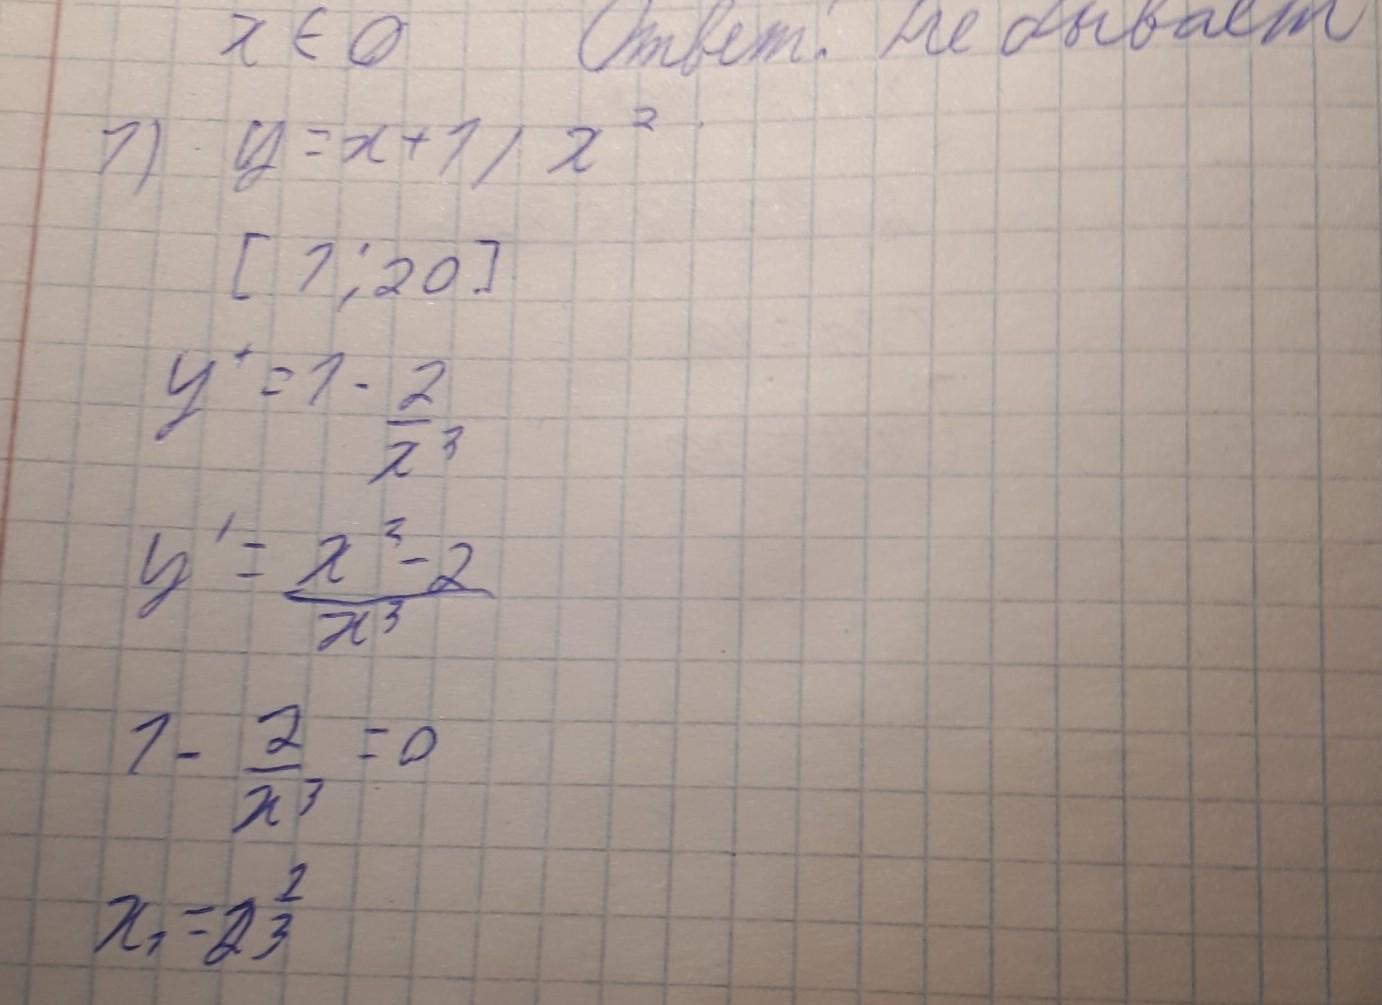 x ∈ ∅ Ответ: не бывает
1) y = x + 1 / x²
[1; 20]
y' = 1 - 2/x³
y' = (x³ - 2)/x³
1 - 2/x³ = 0
x₁ = 2 2/3